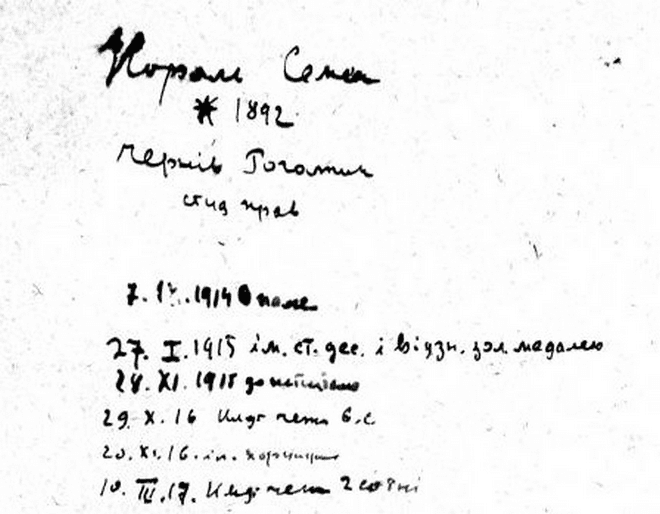 Король Семен
* 1892
Черпів Рогатин
студ прав
7. IX. 1914 поле
27. I. 1915 ім. ст. дес. і відзн. зол. медалею
28. XI. 1915 до
29. X. 16 Кмдт чети 6. с.
20. XI. 16. ім. хорунжим
10. III. 17. Кмдт чети 2 сотні